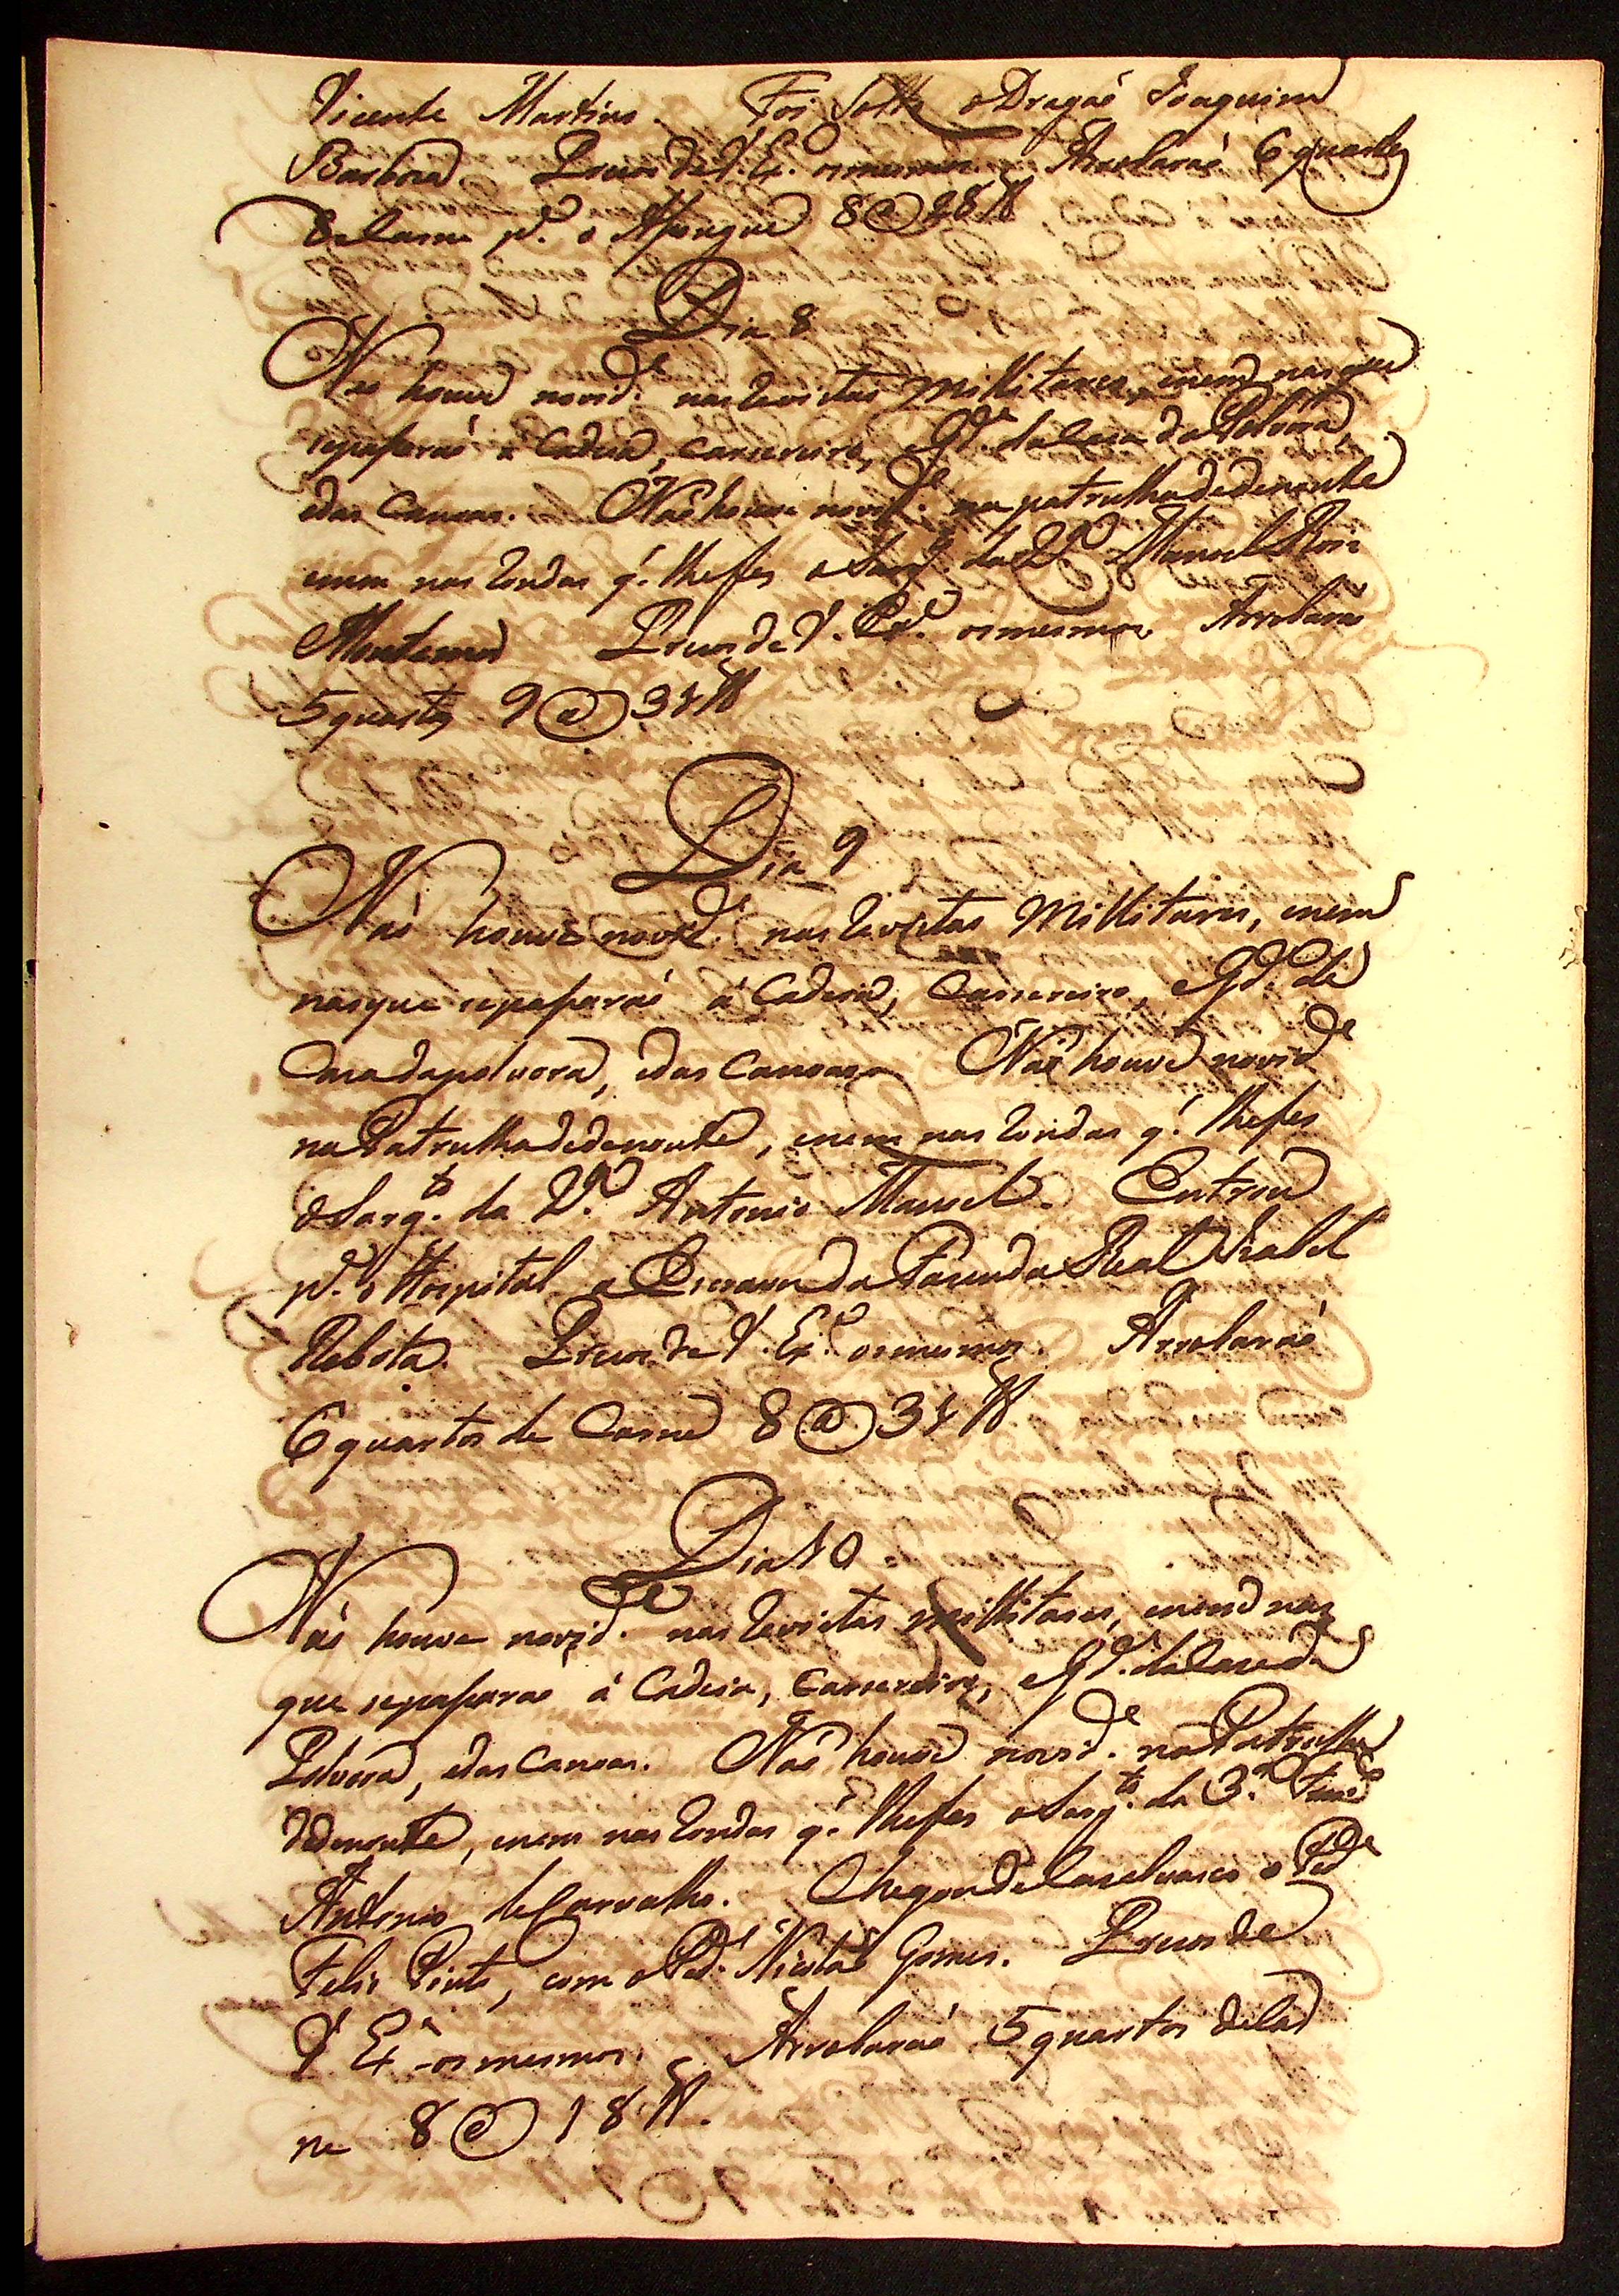 Vicente Martins. Foi solto o Dragaõ Joaquim
Barboza. Prezos de V. Ex.ª os mesmos. Arrobaraõ 6 quartos
de Carne p.ª o Asougue 8 @ 28 lb
Dia 8
Naõ houve novid.e nas revistas Millitares, enem nas que
sepasaraõ a Cadeia, Carsereiro, eGd.ª da Casa da Polvora
edas Canoas. Naõ houve novid.e na patrulha dedenoute
enem nas rondas q.' lhefes o Sarg.to da V.ª Manoel Roiz
Montemor Prezos de V. Ex.ª osmesmos Arrobaraõ
5 quartos 9 @ 31 lb
Dia 9
Naõ houve novid.e nas revistas Millitares, enem
nasque sepasaraõ á Cadeia, Carsereiro, eGd.ª da
Casa dapolvora, edas Canoas Naõ houve novid.e
na Patrulha dedenoute, enem nas rondas q.' lhefes
oSarg.to da V.ª Antonio Manoel. Entrou
p.ª o Hospital a Escrava da Fazenda Real Izabel
Rebola. Prezos de V. Ex.ª osmesmos. Arrobaraõ
6 quartos de Carne 8 @ 31 lb
Dia 10
Naõ houve novid.e nas revistas millitares, enem nas
que sepasaraõ á Cadeia, Carsereiro, eGd.ª da Casa da
Polvora, edas Canoas. Naõ houve novid.e na Patrulha
dedenoute, enem nas rondas q.' lhefes oSarg.to da 3.ª
Antonio de Carvalho. Chegou de Casalvasco o Ped.e
Felis Pinto, com oPed.e Nicoláo Gomes. Prezos de
V Ex.ª osmesmos. Arrobaraõ 5 quartos de Car
ne 8 @ 18 lb.